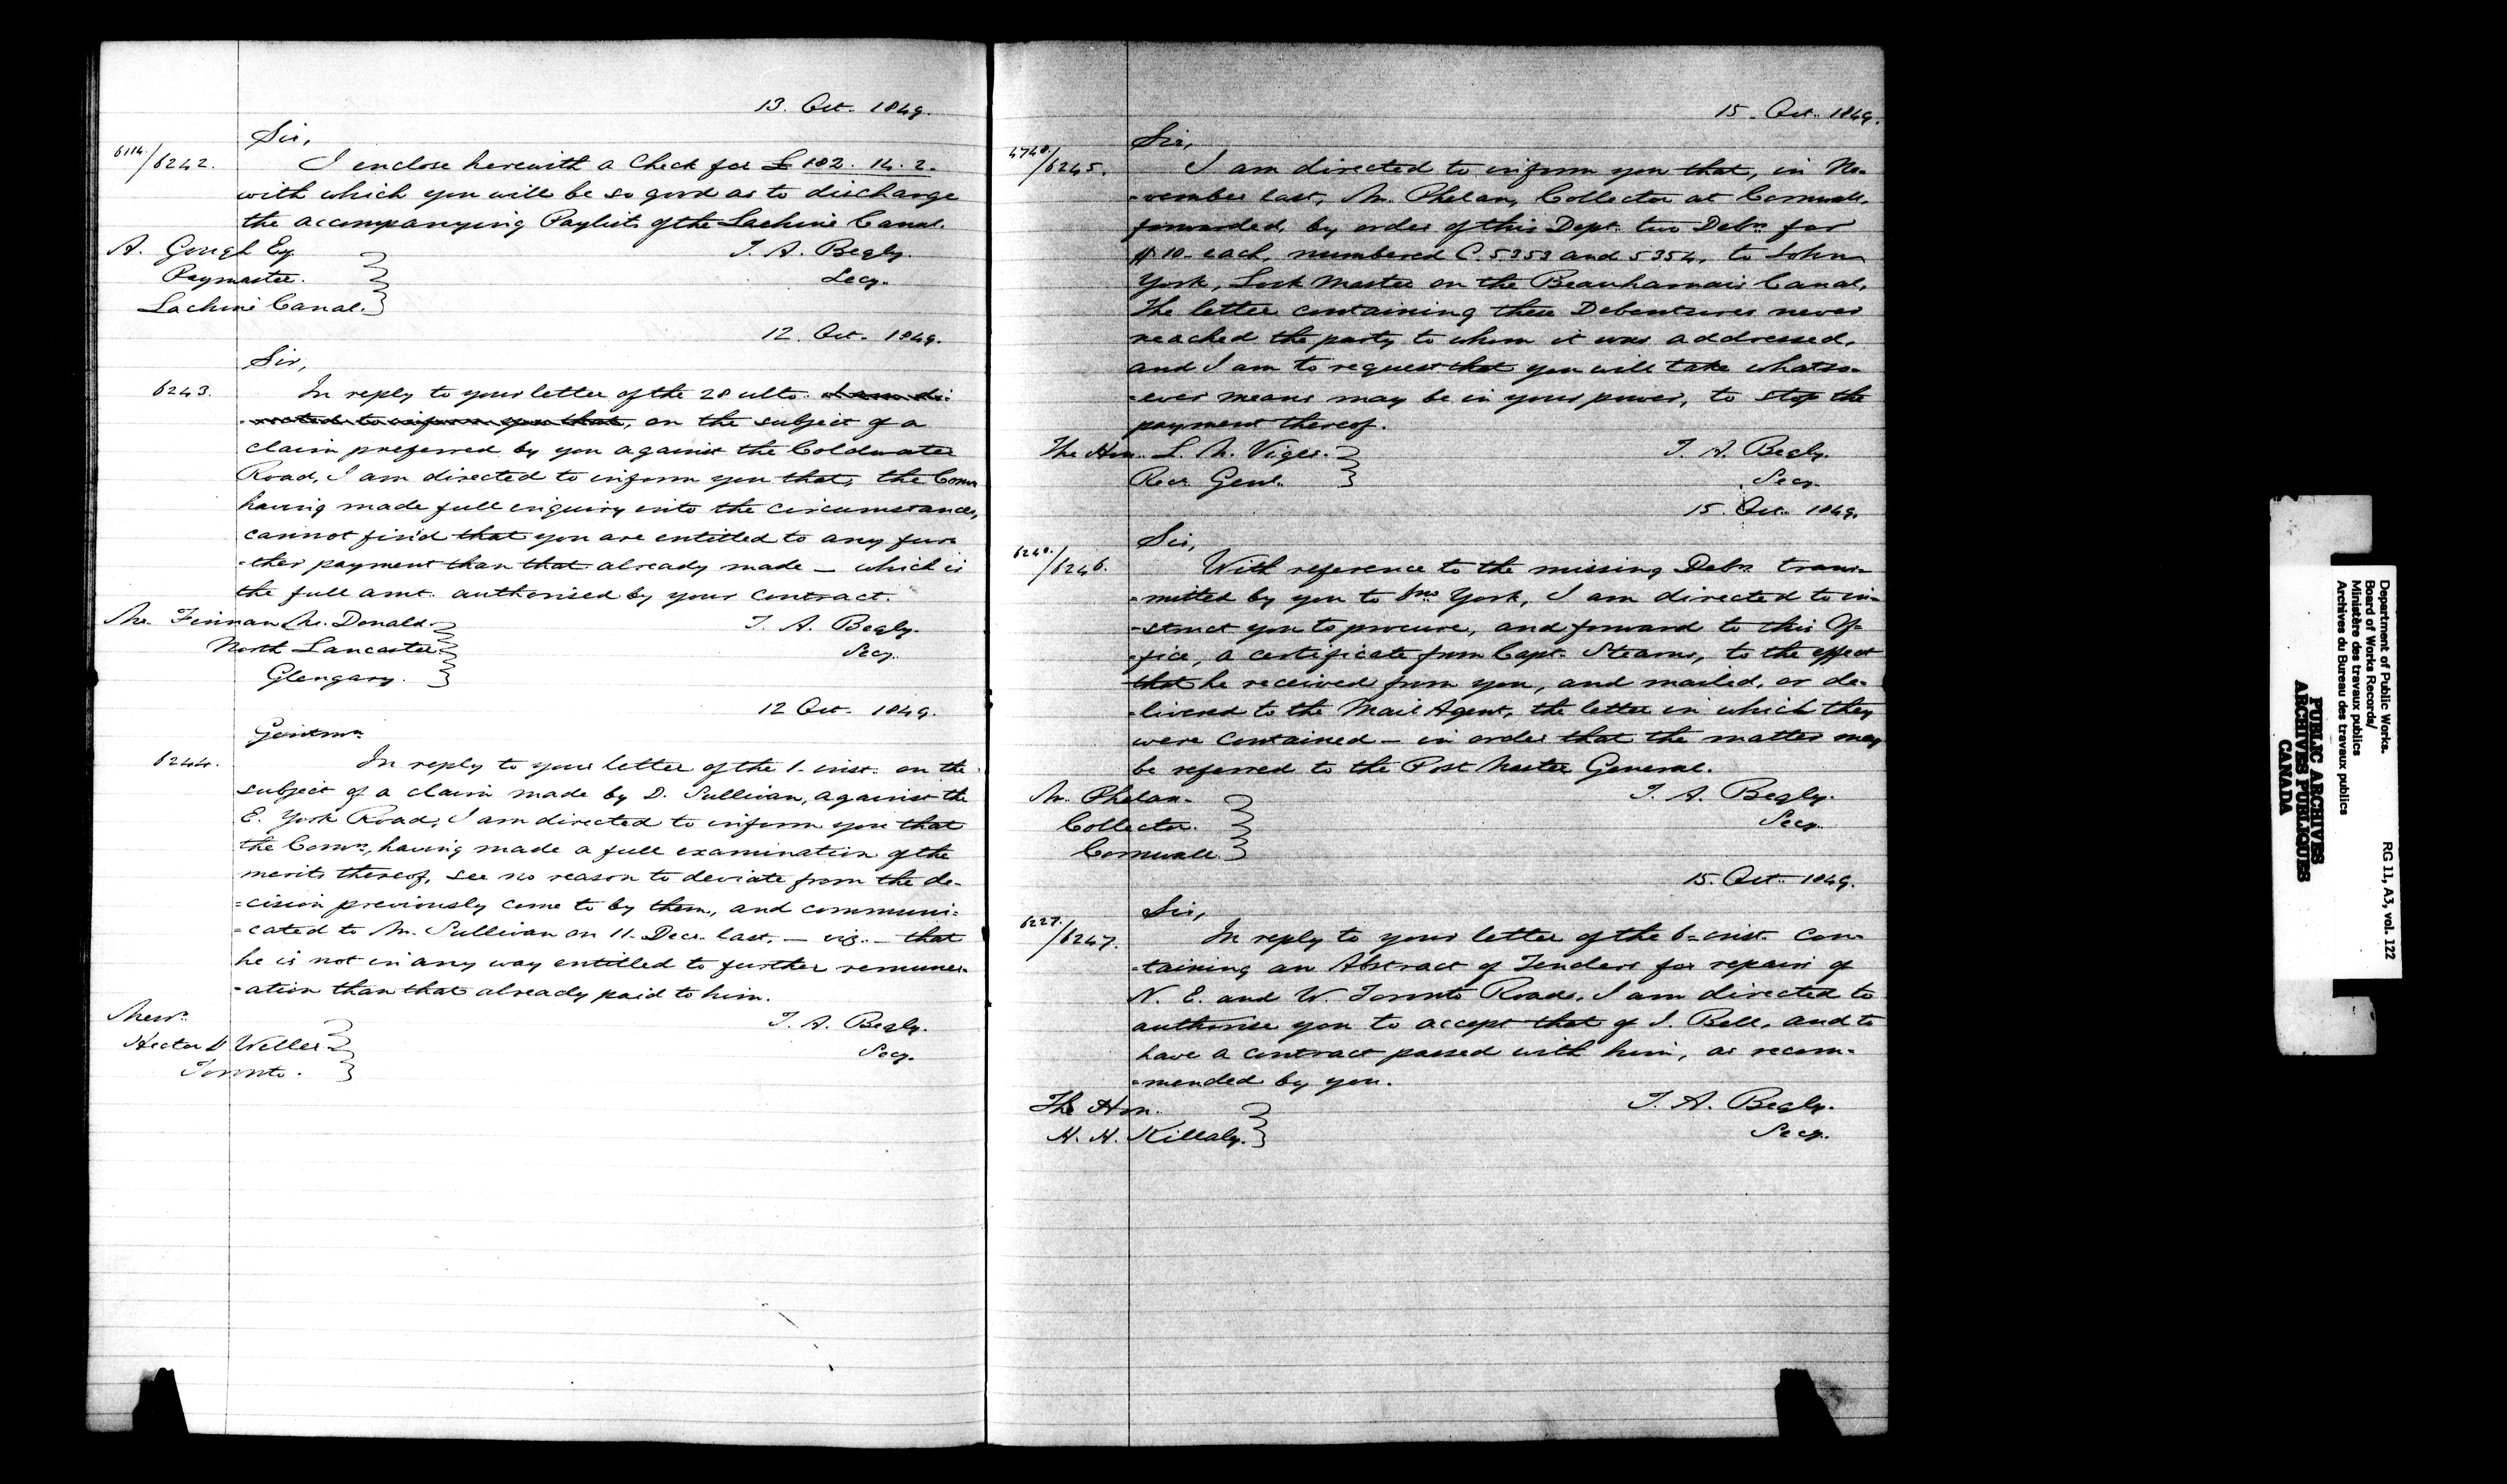 13. Oct. 1849.
Sir,
6114./6242. I enclose herewith a Check for £102. 14. 2.
with which you will be so good as to discharge
the accompanying Paylists of the Lachine Canal.
A. Gough Esq T. A. Begly.
Paymaster. Secy.
Lachine Canal.
12. Oct. 1849.
Sir,
6243. In reply to your letter of the 28 ulto. I am di-
-rected to inform you that, on the subject of a
claim preferred by you against the Coldwater
Road, I am directed to inform you that, the Comrs
having made full enquiry into the circumstances,
cannot find that you are entitled to any fur
-ther payment than that already made — which is
the full amt. authorised by your contract.
Mr. Finnan Mc. Donald. T. A. Begly.
North Lancaster Secy.
Glengary.
12 Oct. 1849.
Gentmn
6244. In reply to your letter of the 1- inst. on the
subject of a claim made by D. Sullivan, against the
E. York Road, I am directed to inform you that
the Comrs, having made a full examination of the
merits thereof, see no reason to deviate from the de-
-cision previously come to by them, and communi-
-cated to Mr. Sullivan on 11- Decr. last, — viz. — that
he is not in any way entitled to further remuner-
-ation than that already paid to him.
Messrs. T. A. Begly.
Hector & Weller Secy.
Toronto.
15. Oct. 1849.
Sir,
4740./6245. I am directed to inform you that, in No-
-vember last, Mr. Phelan, Collector at Cornwall,
forwarded, by order of this Dept. two Debrs for
$10- each, numbered C. 5353 and 5354, to John
York, Lock Master on the Beauharnais Canal,
The letter containing these Debentures never
reached the party to whom it was addressed,
and I am to request that you will take whatso-
-ever means may be in your power, to stop the
payment thereof.
The Hon. L. M. Viger. T. A. Begly.
Recr. Genl. Secy.
15. Oct. 1849.
Sir,
6240./6246. With reference to the missing Debrs trans-
-mitted by you to Jno York, I am directed to in-
-struct you to procure, and forward to this Of-
-fice, a certificate from Capt. Stearns, to the effect
that he received from you, and mailed, or de-
-livered to the Mail Agent, the letter in which they
were contained — in order that the matter may
be referred to the Post Master General.
Mr. Phelan. T. A. Begly.
Collector. Secy.
Cornwall
15. Oct. 1849.
Sir,
6227./6247. In reply to your letter of the 6- inst. con-
-taining an Abstract of Tenders for repairs of
N. E. and W. Toronto Roads, I am directed to
authorise you to accept that of J. Bell, and to
have a contract passed with him, as recom-
-mended by you.
The Hon. T. A. Begly.
H. H. Killaly. Secy.
Department of Public Works.
Board of Works Records/
Ministère des travaux publics
Archives du Bureau des travaux publics
RG 11, A3, vol. 122
PUBLIC ARCHIVES
ARCHIVES PUBLIQUES
CANADA